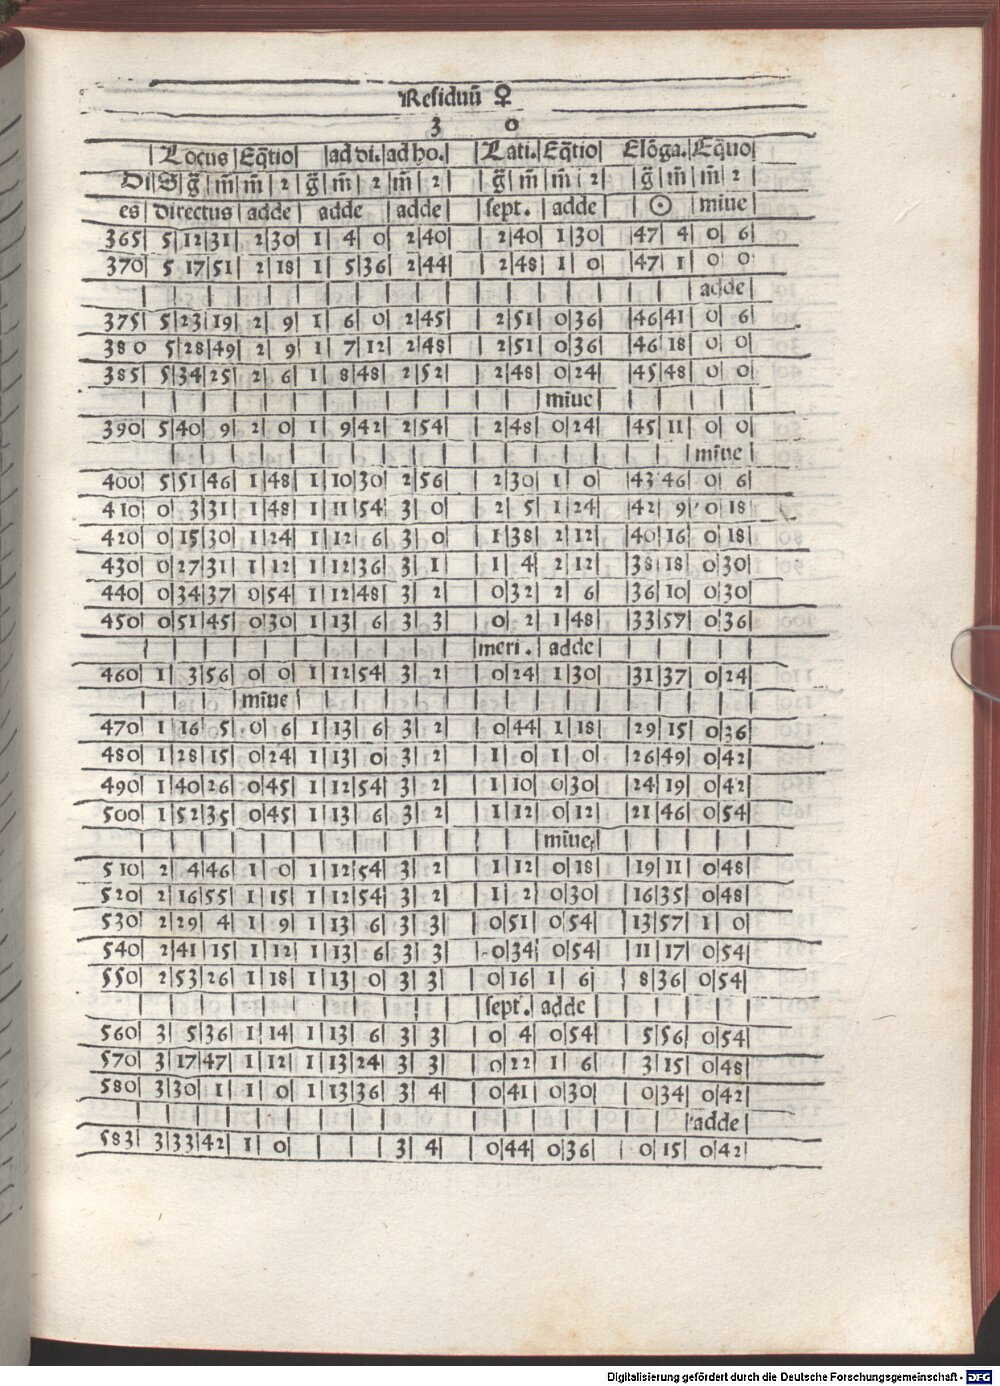 Residuũ ♀
3 0
| Locus | Eq̃tio | ad di. | ad ho. | Lati. | Eq̃tio | Elõga. | Eq̃uo |
Di | S | g̃ | m̃ | m̃ | 2 | g̃ | m̃ | 2 | m̃ | 2 | g̃ | m̃ | m̃ | 2 | g̃ | m̃ | m̃ | 2 |
es | directus | adde | adde | adde | sept. | adde | ☉ | miue |
365 | 5 | 12 | 31 | 2 | 30 | 1 | 4 | 0 | 2 | 40 | 2 | 40 | 1 | 30 | 47 | 4 | 0 | 6 |
370 | 5 | 17 | 51 | 2 | 18 | 1 | 5 | 36 | 2 | 44 | 2 | 48 | 1 | 0 | 47 | 1 | 0 | 0 |
adde
375 | 5 | 23 | 19 | 2 | 9 | 1 | 6 | 0 | 2 | 45 | 2 | 51 | 0 | 36 | 46 | 41 | 0 | 6 |
380 | 5 | 28 | 49 | 2 | 9 | 1 | 7 | 12 | 2 | 48 | 2 | 51 | 0 | 36 | 46 | 18 | 0 | 0 |
385 | 5 | 34 | 25 | 2 | 6 | 1 | 8 | 48 | 2 | 52 | 2 | 48 | 0 | 24 | 45 | 48 | 0 | 0 |
miue
390 | 5 | 40 | 9 | 2 | 0 | 1 | 9 | 42 | 2 | 54 | 2 | 48 | 0 | 24 | 45 | 11 | 0 | 0 |
mĩue
400 | 5 | 51 | 46 | 1 | 48 | 1 | 10 | 30 | 2 | 56 | 2 | 30 | 1 | 0 | 43 | 46 | 0 | 6 |
410 | 0 | 3 | 31 | 1 | 48 | 1 | 11 | 54 | 3 | 0 | 2 | 5 | 1 | 24 | 42 | 9 | 0 | 18 |
420 | 0 | 15 | 30 | 1 | 24 | 1 | 12 | 6 | 3 | 0 | 1 | 38 | 2 | 12 | 40 | 16 | 0 | 18 |
430 | 0 | 27 | 31 | 1 | 12 | 1 | 12 | 36 | 3 | 1 | 1 | 4 | 2 | 12 | 38 | 18 | 0 | 30 |
440 | 0 | 34 | 37 | 0 | 54 | 1 | 12 | 48 | 3 | 2 | 0 | 32 | 2 | 6 | 36 | 10 | 0 | 30 |
450 | 0 | 51 | 45 | 0 | 30 | 1 | 13 | 6 | 3 | 3 | 0 | 2 | 1 | 48 | 33 | 57 | 0 | 36 |
meri. | adde
460 | 1 | 3 | 56 | 0 | 0 | 1 | 12 | 54 | 3 | 2 | 0 | 24 | 1 | 30 | 31 | 37 | 0 | 24 |
mĩue
470 | 1 | 16 | 5 | 0 | 6 | 1 | 13 | 6 | 3 | 2 | 0 | 44 | 1 | 18 | 29 | 15 | 0 | 36 |
480 | 1 | 28 | 15 | 0 | 24 | 1 | 13 | 0 | 3 | 2 | 1 | 0 | 1 | 0 | 26 | 49 | 0 | 42 |
490 | 1 | 40 | 26 | 0 | 45 | 1 | 12 | 54 | 3 | 2 | 1 | 10 | 0 | 30 | 24 | 19 | 0 | 42 |
500 | 1 | 52 | 35 | 0 | 45 | 1 | 13 | 6 | 3 | 2 | 1 | 12 | 0 | 12 | 21 | 46 | 0 | 54 |
mĩue
510 | 2 | 4 | 46 | 1 | 0 | 1 | 12 | 54 | 3 | 2 | 1 | 12 | 0 | 18 | 19 | 11 | 0 | 48 |
520 | 2 | 16 | 55 | 1 | 15 | 1 | 12 | 54 | 3 | 2 | 1 | 2 | 0 | 30 | 16 | 35 | 0 | 48 |
530 | 2 | 29 | 4 | 1 | 9 | 1 | 13 | 6 | 3 | 3 | 0 | 51 | 0 | 54 | 13 | 57 | 1 | 0 |
540 | 2 | 41 | 15 | 1 | 12 | 1 | 13 | 6 | 3 | 3 | 0 | 34 | 0 | 54 | 11 | 17 | 0 | 54 |
550 | 2 | 53 | 26 | 1 | 18 | 1 | 13 | 0 | 3 | 3 | 0 | 16 | 1 | 6 | 8 | 36 | 0 | 54 |
sept. | adde
560 | 3 | 5 | 36 | 1 | 14 | 1 | 13 | 6 | 3 | 3 | 0 | 4 | 0 | 54 | 5 | 56 | 0 | 54 |
570 | 3 | 17 | 47 | 1 | 12 | 1 | 13 | 24 | 3 | 3 | 0 | 22 | 1 | 6 | 3 | 15 | 0 | 48 |
580 | 3 | 30 | 1 | 1 | 0 | 1 | 13 | 36 | 3 | 4 | 0 | 41 | 0 | 30 | 0 | 34 | 0 | 42 |
adde
583 | 3 | 33 | 42 | 1 | 0 | | | | 3 | 4 | 0 | 44 | 0 | 36 | 0 | 15 | 0 | 42 |
Digitalisierung gefördert durch die Deutsche Forschungsgemeinschaft - DFG